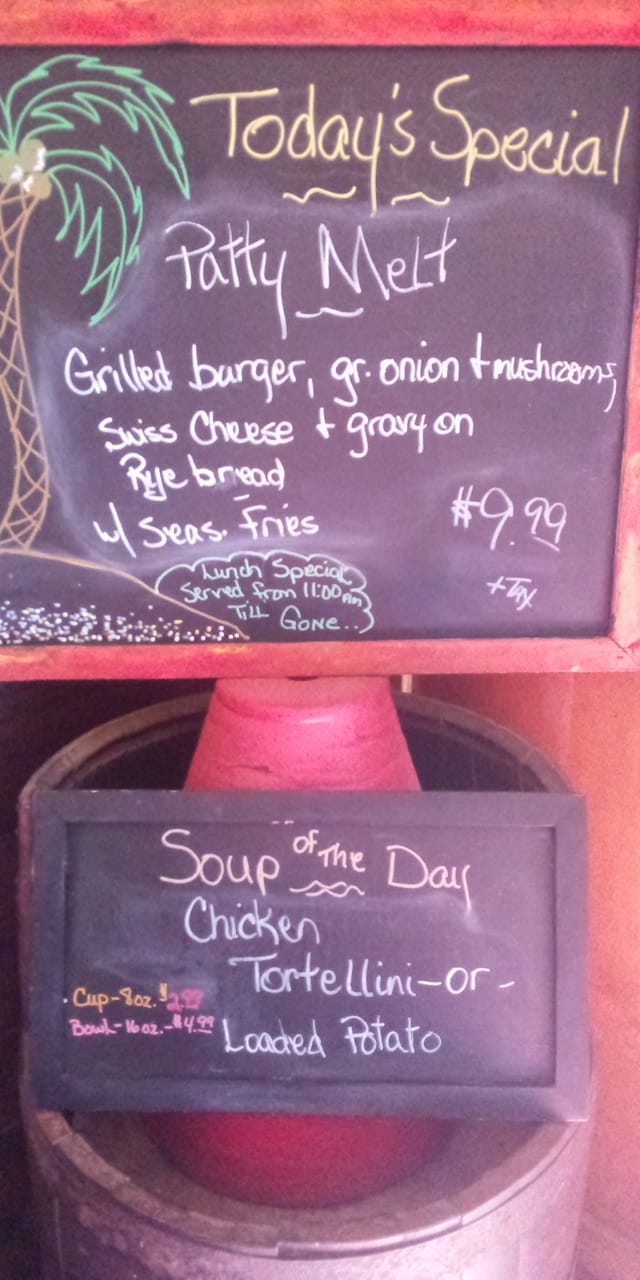 Today's Special
Patty Melt
Grilled burger, gr. onion + mushrooms,
Swiss Cheese + gravy on
Rye bread
w/ Seas. Fries
$9.99
+Tax
Lunch Special
Served from 11:00 am
Till Gone..
Soup of The Day
Chicken
Tortellini-or-
Loaded Potato
Cup-8oz. $2.99
Bowl-16oz.-$4.99